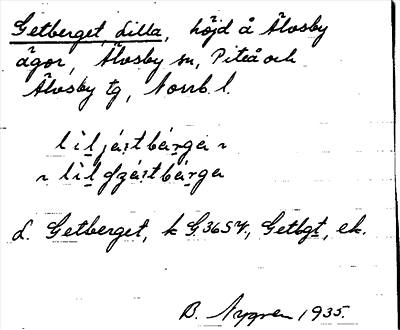 Getberget, Lilla, höjd å Älvsby
ägor, Älvsby sn, Piteå och
Älvsby tg, Norrb. l.
lil já:tbárga ~
~ lil gzá:tbárga
L. Getberget, k G. 36 SV, Getbgt, ek.
B. Nygren 1935.